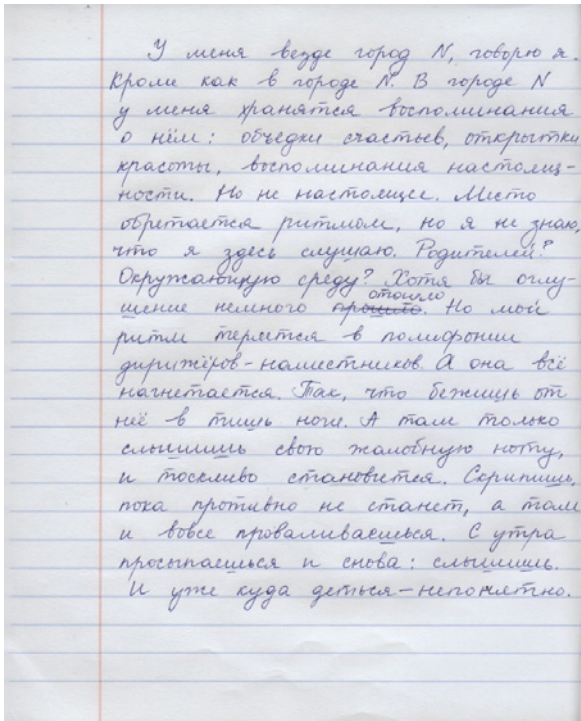 У меня везде город N, говорю я.
Кроме как в городе N. В городе N
у меня хранятся воспоминания
о нём: объедки счастьев, открытки
красоты, воспоминания настоящ-
ности. Но не настоящее. Место
обретается ритмом, но я не знаю,
что я здесь слушаю. Родителей?
Окружающую среду? Хотя бы оглу-
шение немного прошло отошло. Но мой
ритм теряется в полифонии
дирижёров-наместников. А она всё
нагнетается. Так, что бежишь от
неё в тишь ночи. А там только
слышишь свою жалобную ноту,
и тоскливо становится. Скрипишь,
пока противно не станет, а там
и вовсе проваливаешься. С утра
просыпаешься и снова: слышишь.
И уже куда деться – непонятно.